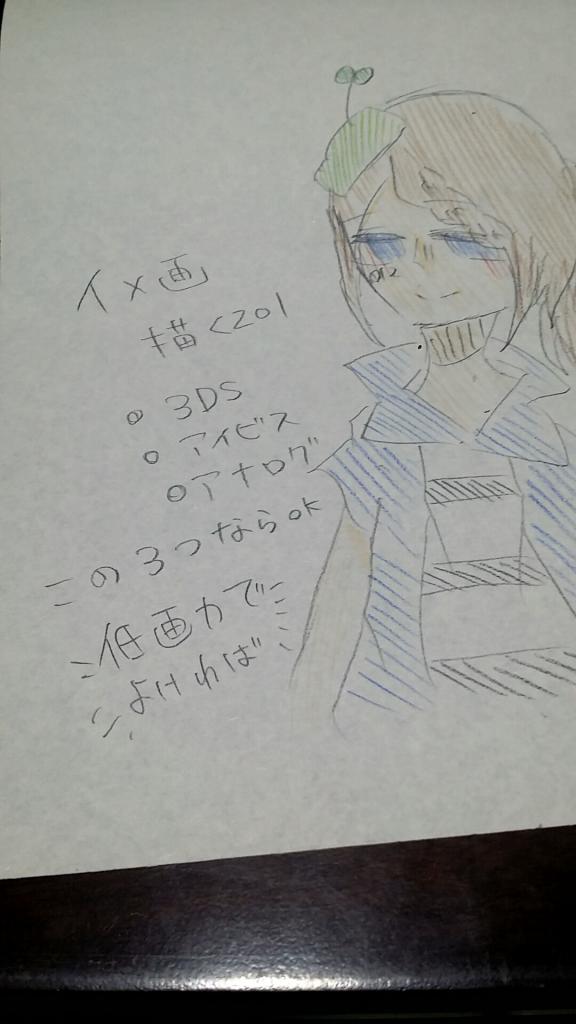 イメ画
描くzo!
• 3DS
• アイビス
• アナログ
この3つならok
低画力で
よければ